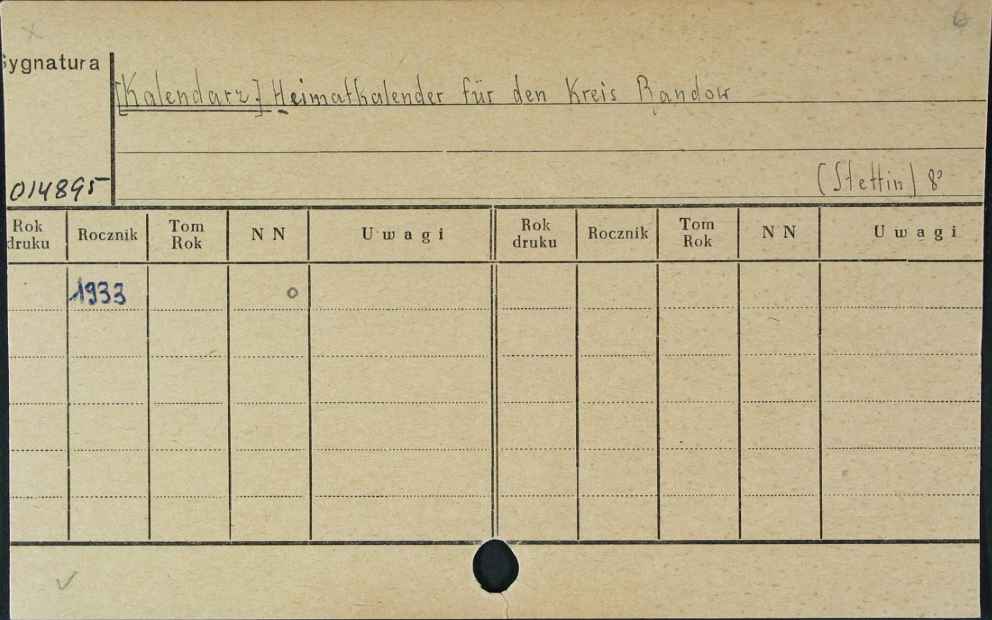 Sygnatura
[Kalendarz] Heimatkalender für den Kreis Randow
(Stettin) 8°
014895
Rok druku Rocznik Tom Rok NN Uwagi Rok druku Rocznik Tom Rok NN Uwagi
1933